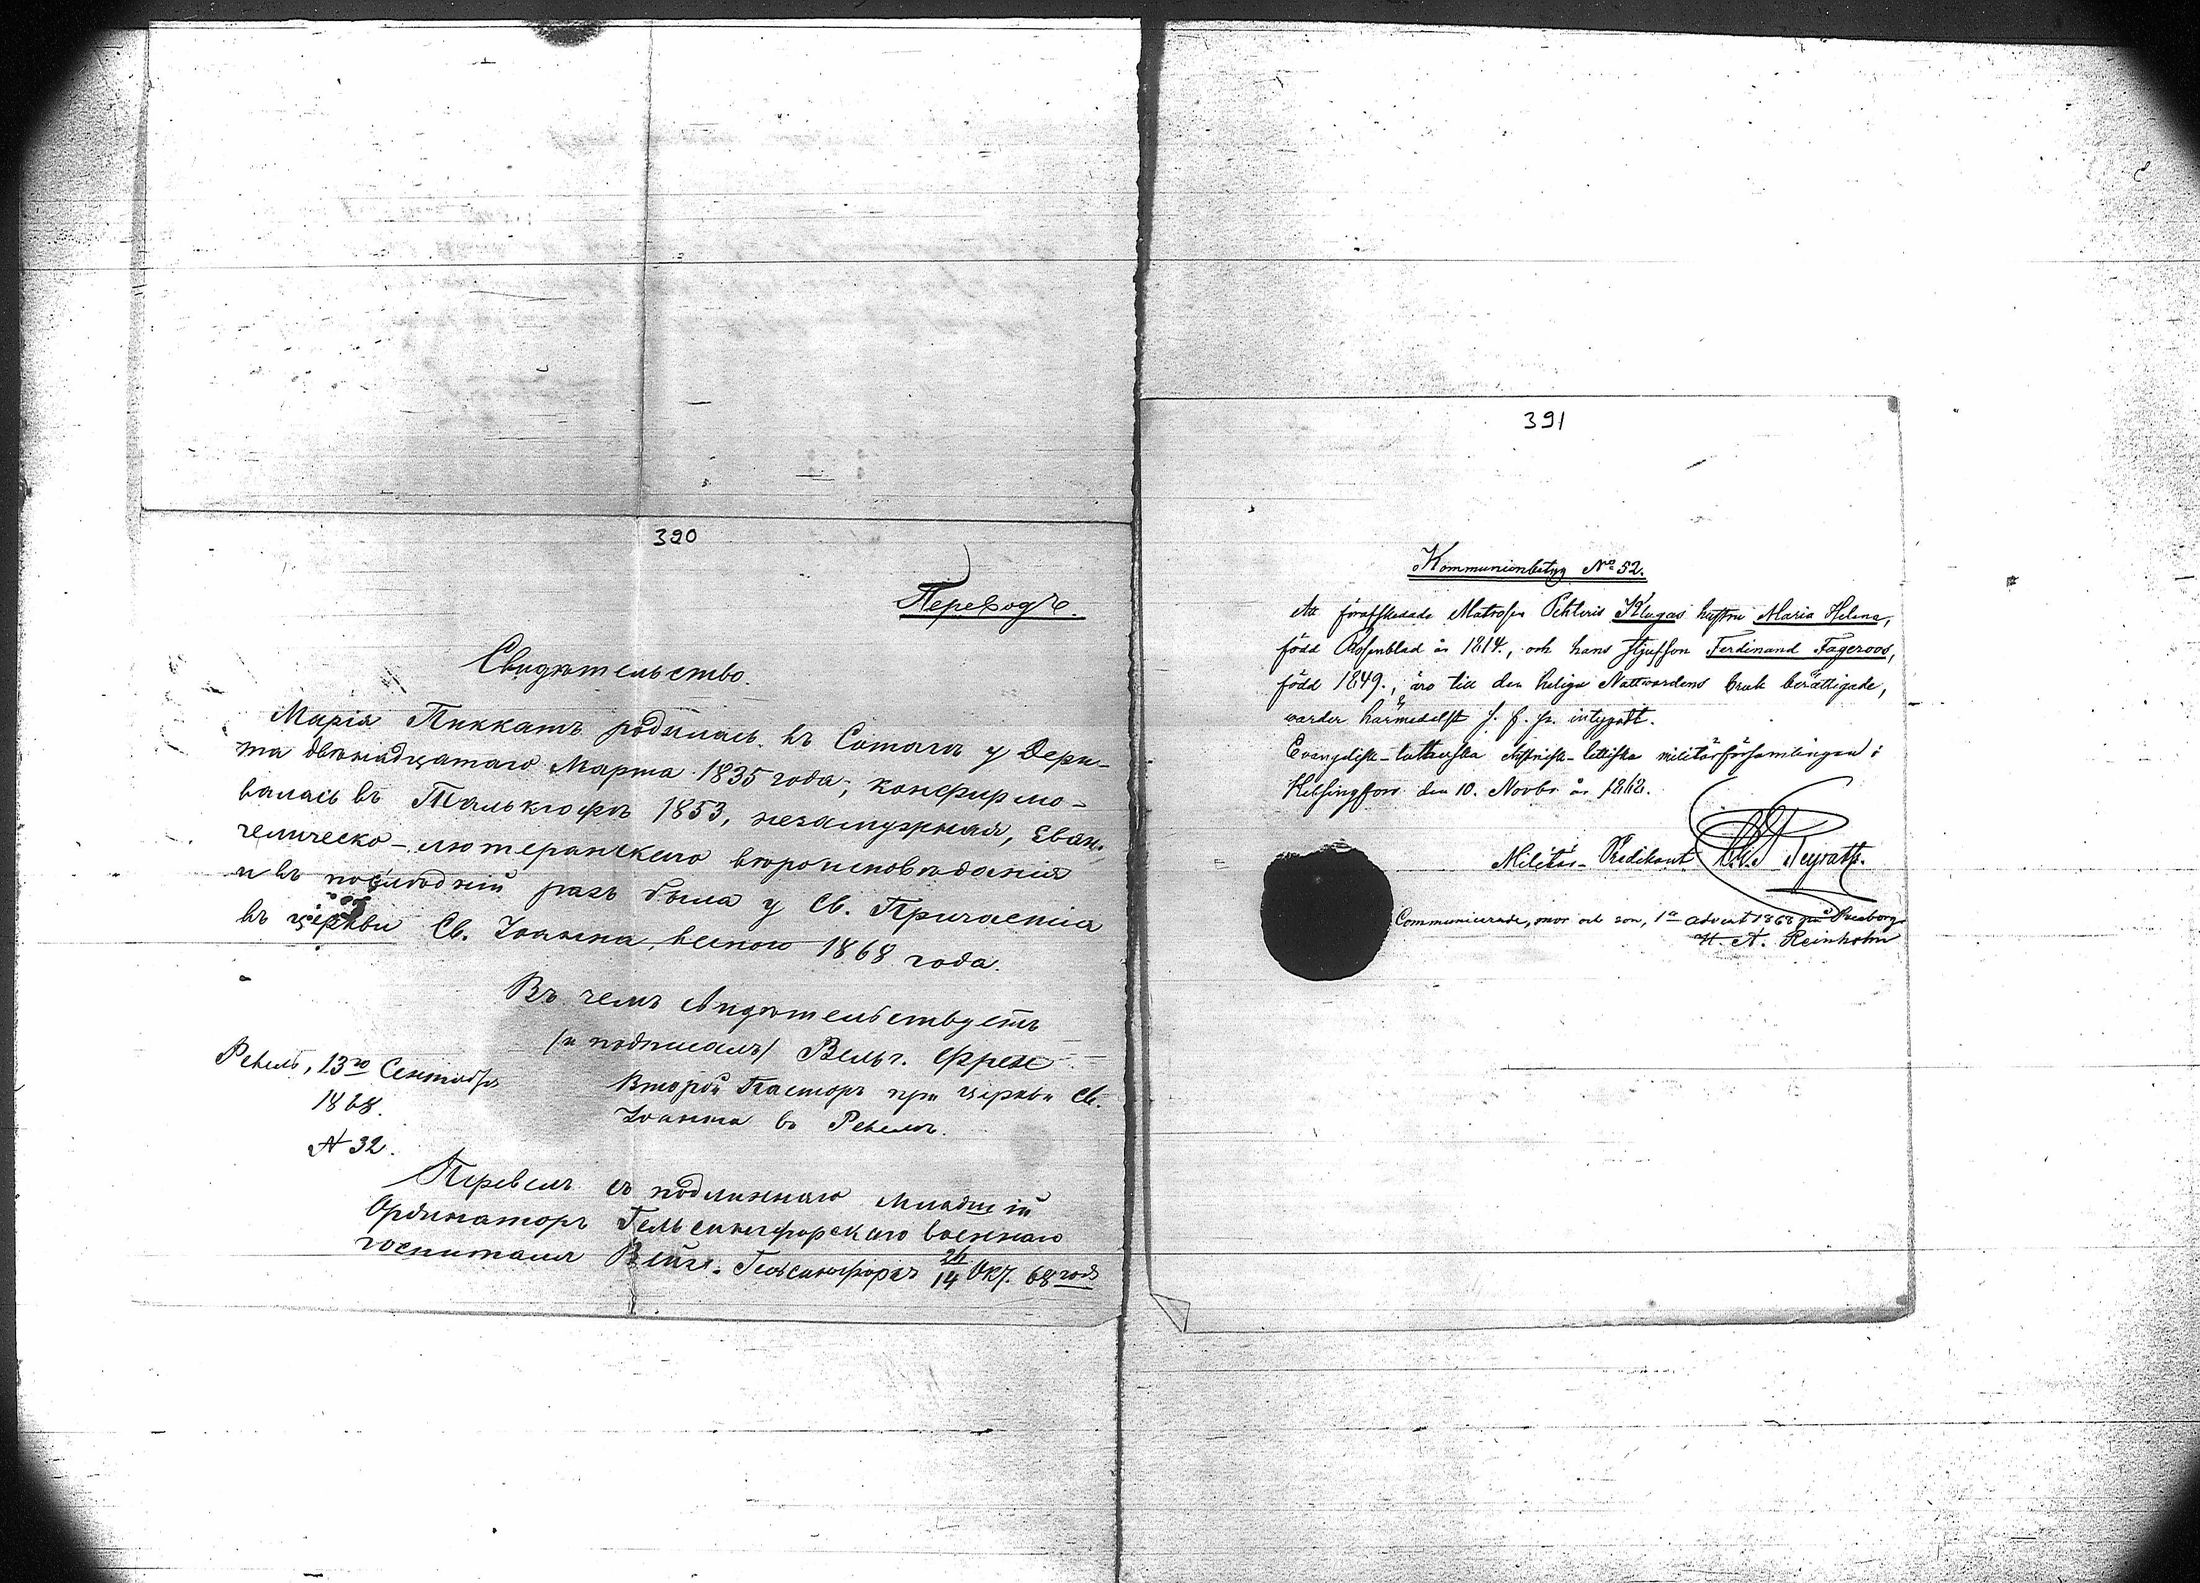 390
Переводъ.
Свидѣтельство.
Марія Пиккатъ родилась въ Сотагѣ у Дерп-
та двѣнадцатаго Марта 1835 года; конфирмо-
валась въ Талькгофѣ 1853, незамужняя, Еван-
гелическо-лютеранскаго вѣроисповѣданія
и въ послѣдній разъ была у Св. Причастія
въ церкви Св. Іоанна, весною 1868 года.
Въ чемъ свидѣтельствуетъ
(и подписалъ) Вельг. Фрезе
Ревель, 13го Сентября
1868.
N 32.
Второй Пасторъ при церкви Св.
Іоанна въ Ревелѣ.
Перевелъ съ подлиннаго младшій
Ординаторъ Гельсингфорскаго военнаго
госпиталя Гельсингфорсъ 26/14 Окт. 68 года
391
Kommunionbetyg No 52.
Att förafskedade Matrosen Pehteris Klugas hustru Maria Helena,
född Rosenblad år 1814., och hans styfson Ferdinand Fageroos,
född 1849., äro till den heliga Nattvardens bruk berättigade,
varder härmedelst s. f. s. intygadt.
Evangelisk-lutherska Estnisk-lettiska militärförsamlingen i
Helsingfors den 10. Novbr år 1868.
Militär-Predikant
Communicerade, mor och son, 1a advent 1868 på Sveaborg.
H. A. Reinholm